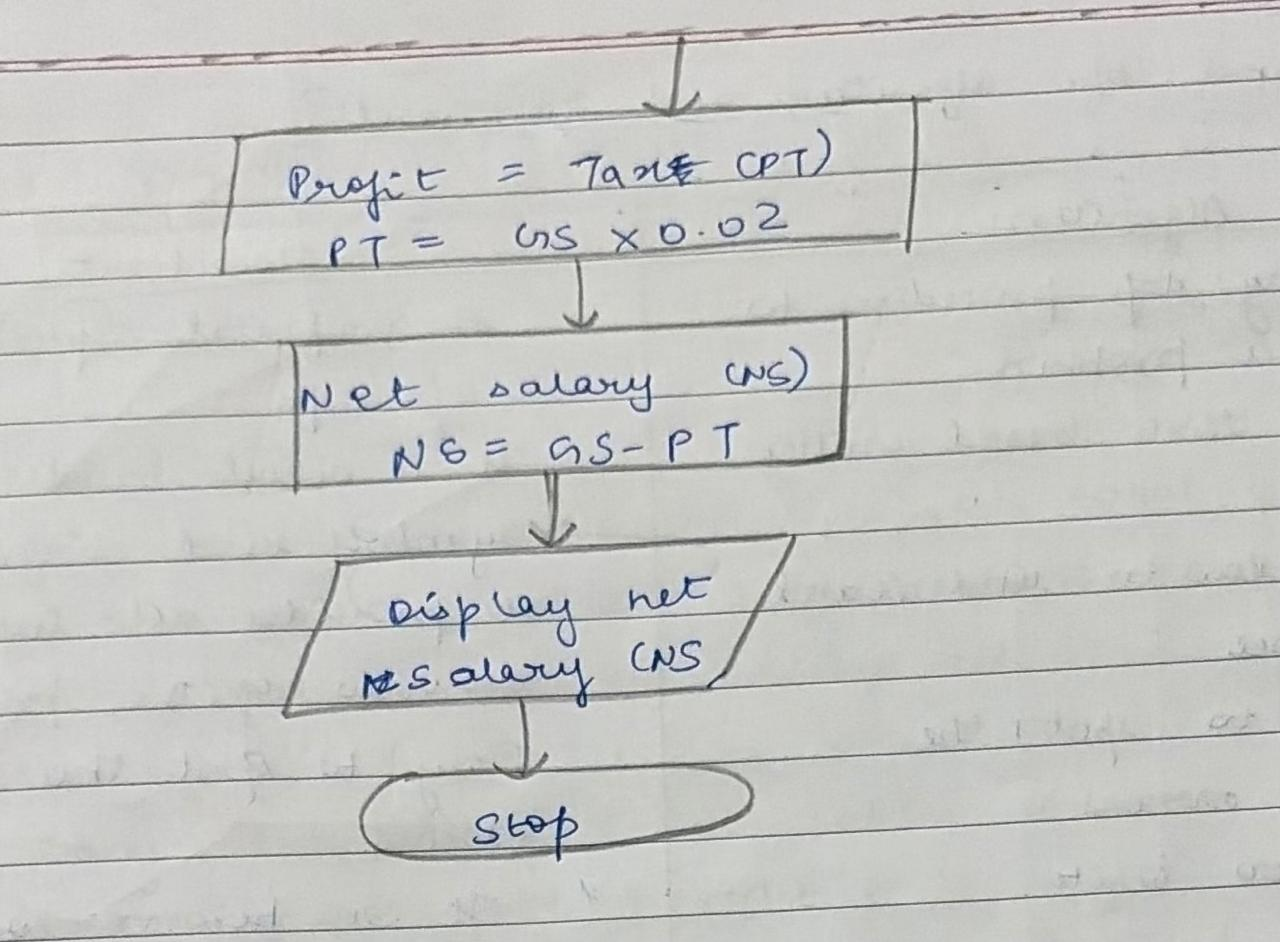 Profit = Tax (PT)
PT = GS x 0.02
Net salary (NS)
NS = GS - PT
Display net
salary (NS
Stop